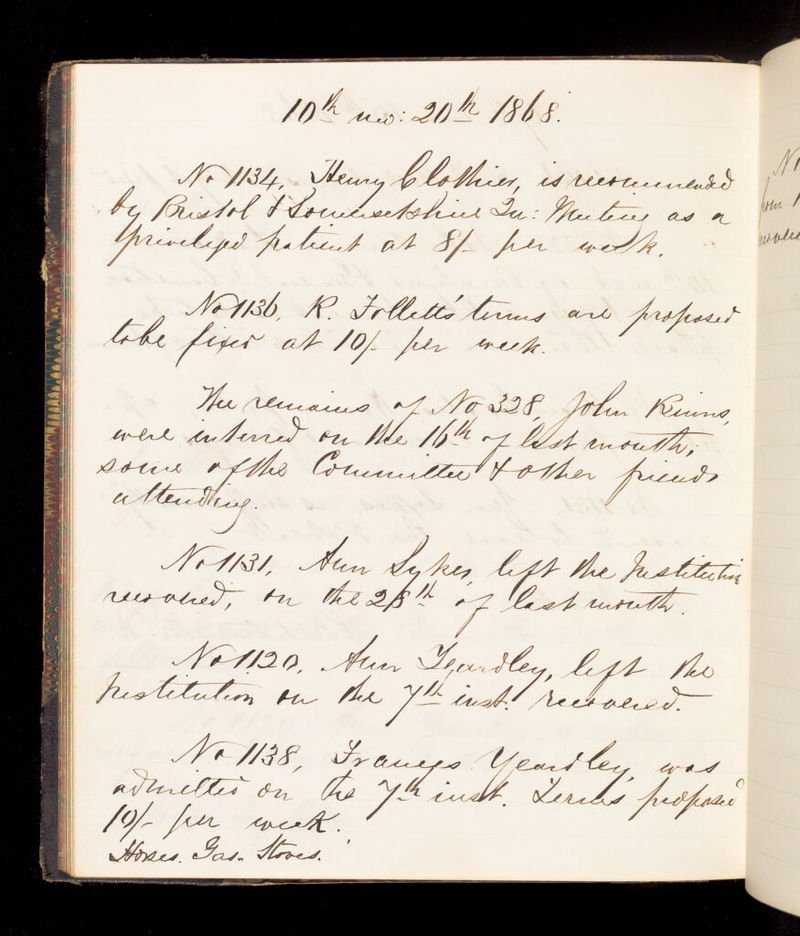 10th mo: 20th 1868.
No 1134, Henry Clothier, is recommended
by Bristol & Somersetshire Qu: Meeting as a
privileged patient at 8/- per week.
No 1136, R. Follett's terms are proposed
to be fixed at 10/- per week.
The remains of No 328, John Binns,
were interred on the 16th of last month;
some of the Committee & other friends
attending.
No 1131, Ann Sykes, left the Institution
recovered, on the 28th of last month.
No 1120, Ann Yeardley, left the
Institution on the 7th inst. recovered.
No 1138, Frances Yeardley, was
admitted on the 7th inst. Terms proposed
10/- per week.
Horses. Gas. Stoves.
No
from